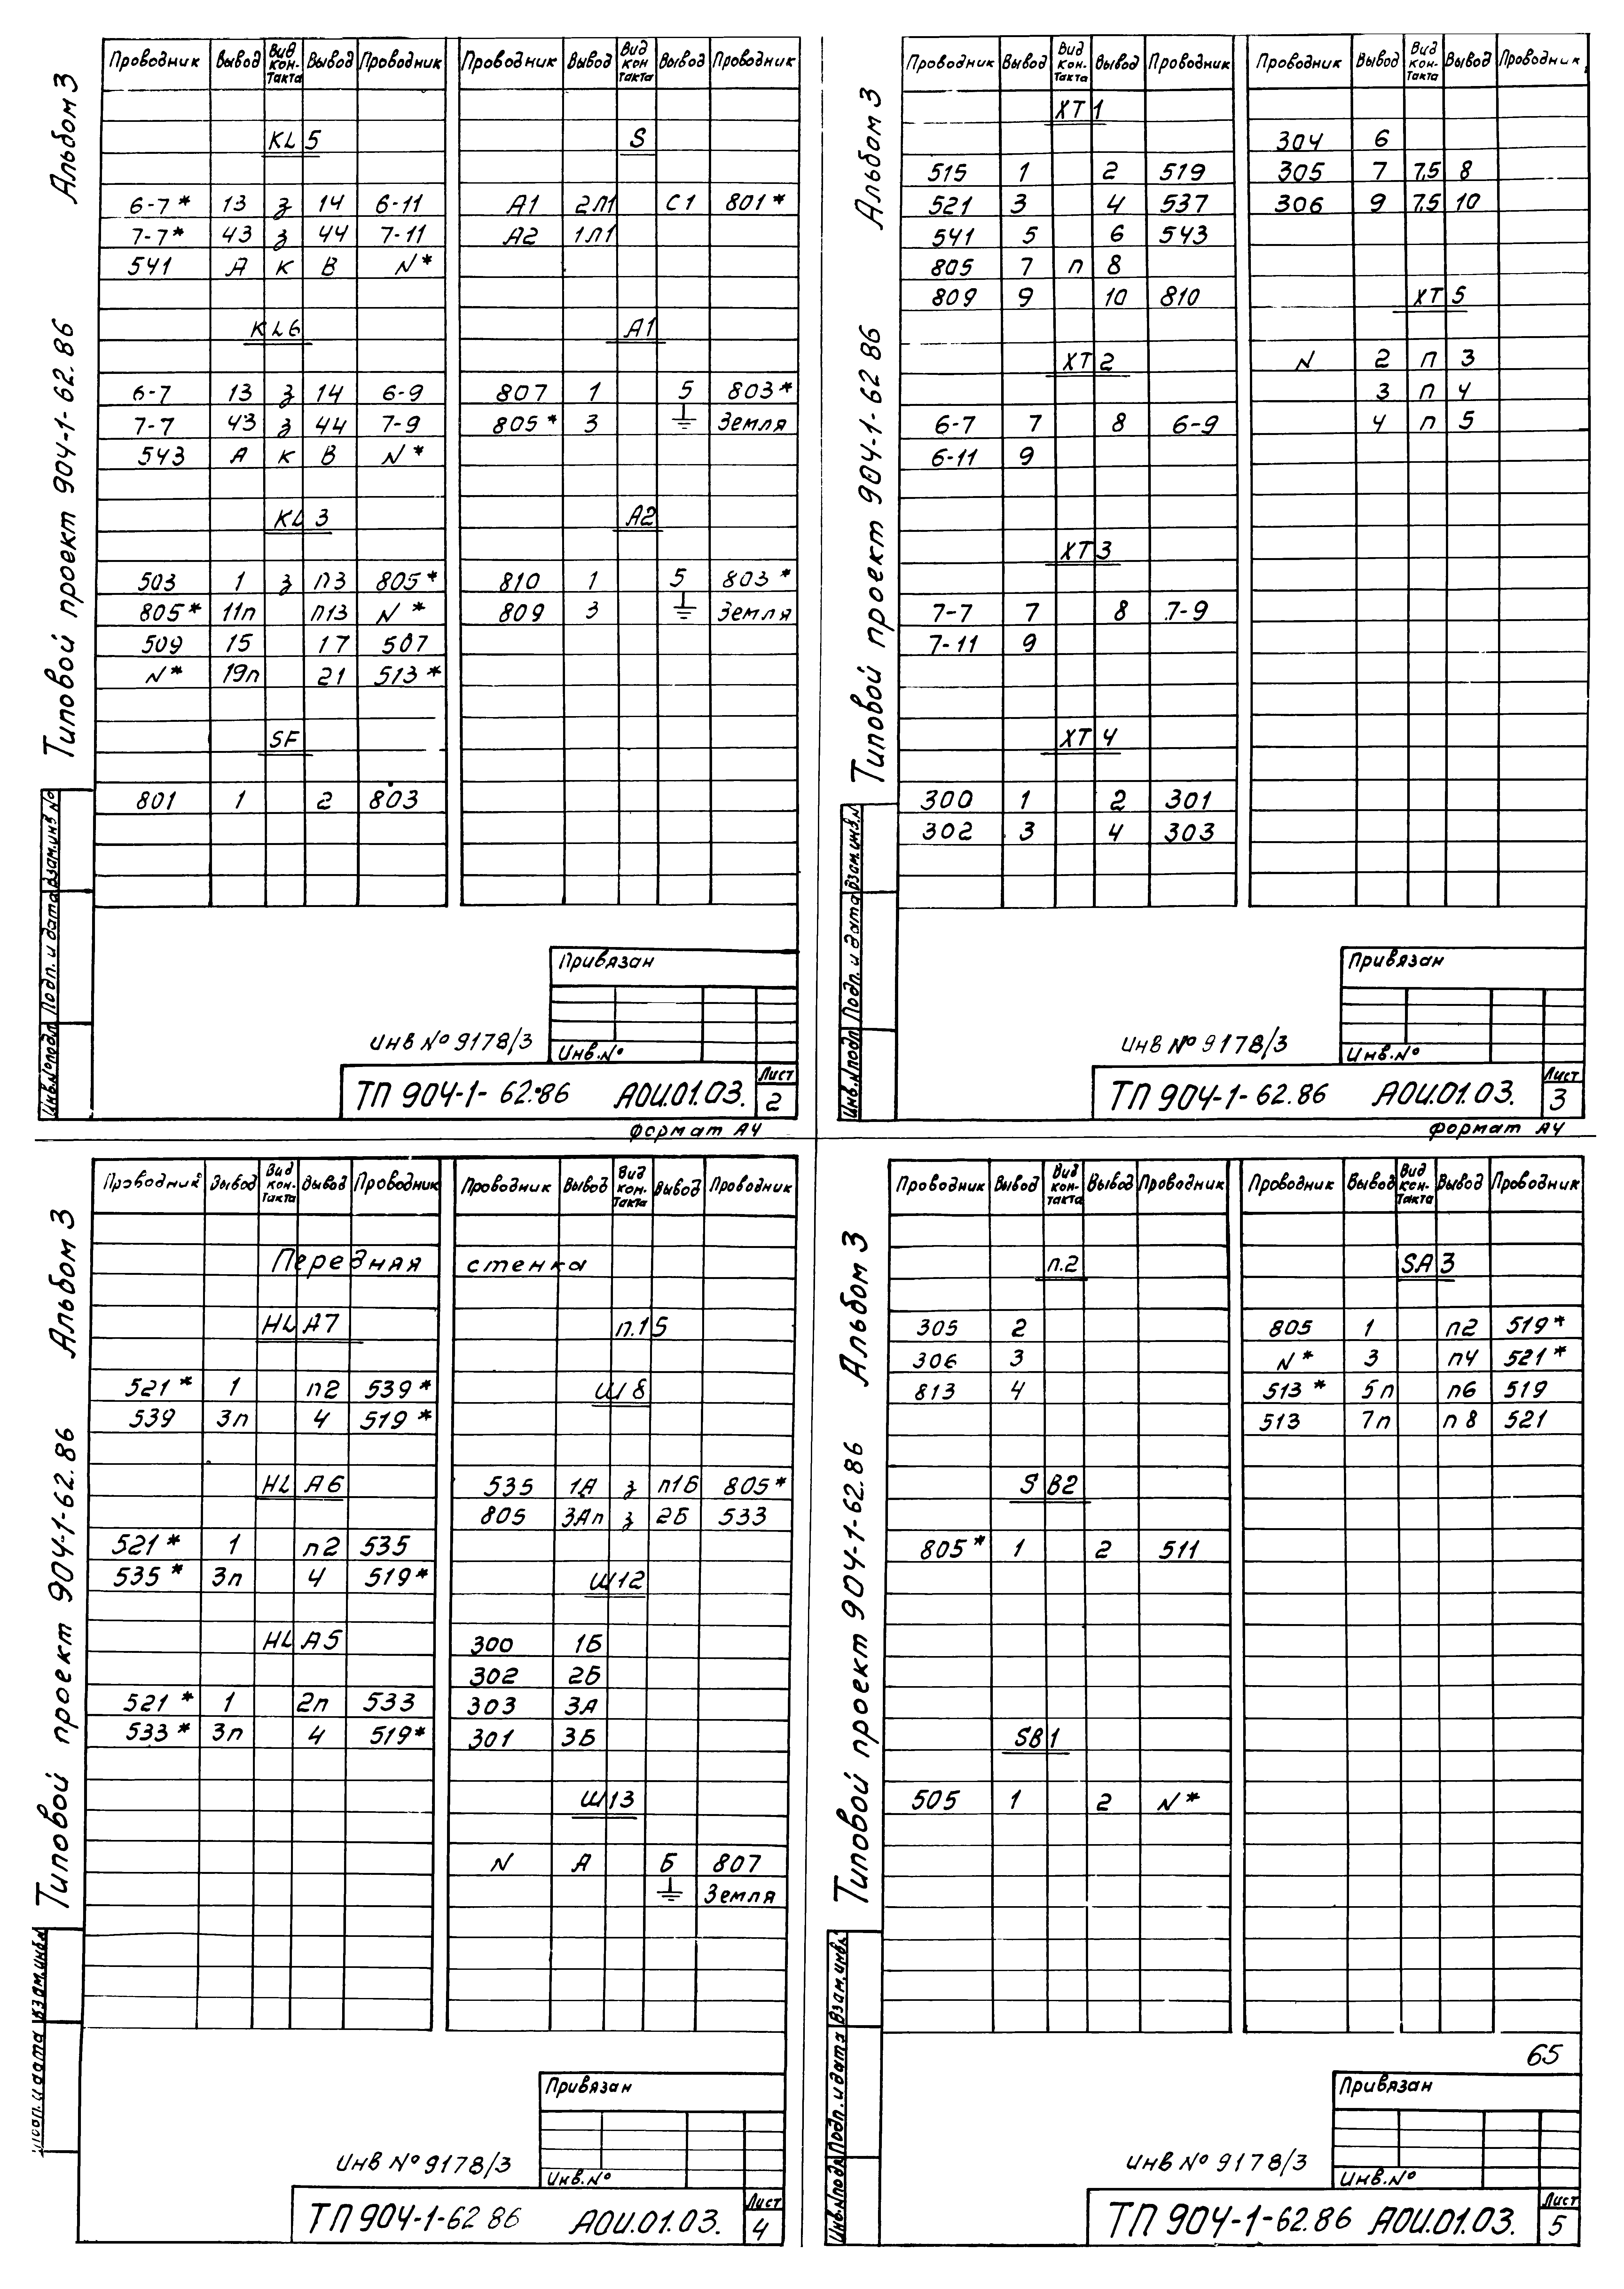 Альбом 3
Типовой проект 904-1-62.86
Взам.инв.№
Подп. и дата
Инв.№подл
Проводник Вывод Вид кон-такта Вывод Проводник
KL5
6-7* 13 з 14 6-11
7-7* 43 з 44 7-11
541 А к В N*
KL6
6-7 13 з 14 6-9
7-7 43 з 44 7-9
543 А к В N*
KL3
503 1 з п3 805*
805* 11п п13 N*
509 15 17 507
N* 19п 21 513*
SF
801 1 2 803
Проводник Вывод Вид кон такта Вывод Проводник
S
А1 2Л1 С1 801*
А2 1Л1
А1
807 1 5 803*
805* 3 ⏚ Земля
А2
810 1 5 803*
809 3 ⏚ Земля
Привязан
Инв.№
Инв № 9178/3
ТП 904-1-62.86 АОИ.01.03.
Лист
2
Формат А4
Альбом 3
Типовой проект 904-1-62 86
Взам.инв.№
Подп. и дата
Инв.№подл
Проводник Вывод Вид кон-такта Вывод Проводник
XT1
515 1 2 519
521 3 4 537
541 5 6 543
805 7 п 8
809 9 10 810
XT2
6-7 7 8 6-9
6-11 9
XT3
7-7 7 8 7-9
7-11 9
XT4
300 1 2 301
302 3 4 303
Проводник Вывод Вид кон-такта Вывод Проводник
304 6
305 7 7,5 8
306 9 7,5 10
XT5
N 2 п 3
3 п 4
4 п 5
Привязан
Инв.№
Инв № 9178/3
ТП 904-1-62.86 АОИ.01.03.
Лист
3
Формат А4
Альбом 3
Типовой проект 904-1-62.86
Взам.инв.№
Подп. и дата
Проводник Вывод Вид кон-такта Вывод Проводник
Передняя стенка
HLA7
521* 1 п2 539*
539 3п 4 519*
HLA6
521* 1 п2 535
535* 3п 4 519*
HLA5
521* 1 2п 533
533* 3п 4 519*
Проводник Вывод Вид кон-такта Вывод Проводник
п.15
Ш8
535 1А з п1Б 805*
805 3Ап з 2Б 533
Ш12
300 1Б
302 2Б
303 3А
301 3Б
Ш13
N А Б 807
⏚ Земля
Привязан
Инв.№
Инв № 9178/3
ТП 904-1-62 86 АОИ.01.03.
Лист
4
Альбом 3
Типовой проект 904-1-62.86
Взам.инв.№
Подп. и дата
Инв.№подл
Проводник Вывод Вид кон-такта Вывод Проводник
п.2
305 2
306 3
813 4
SB2
805* 1 2 511
SB1
505 1 2 N*
Проводник Вывод Вид кон-такта Вывод Проводник
SA3
805 1 п2 519*
N* 3 п4 521*
513* 5п п6 519
513 7п п8 521
65
Привязан
Инв.№
Инв № 9178/3
ТП 904-1-62.86 АОИ.01.03.
Лист
5